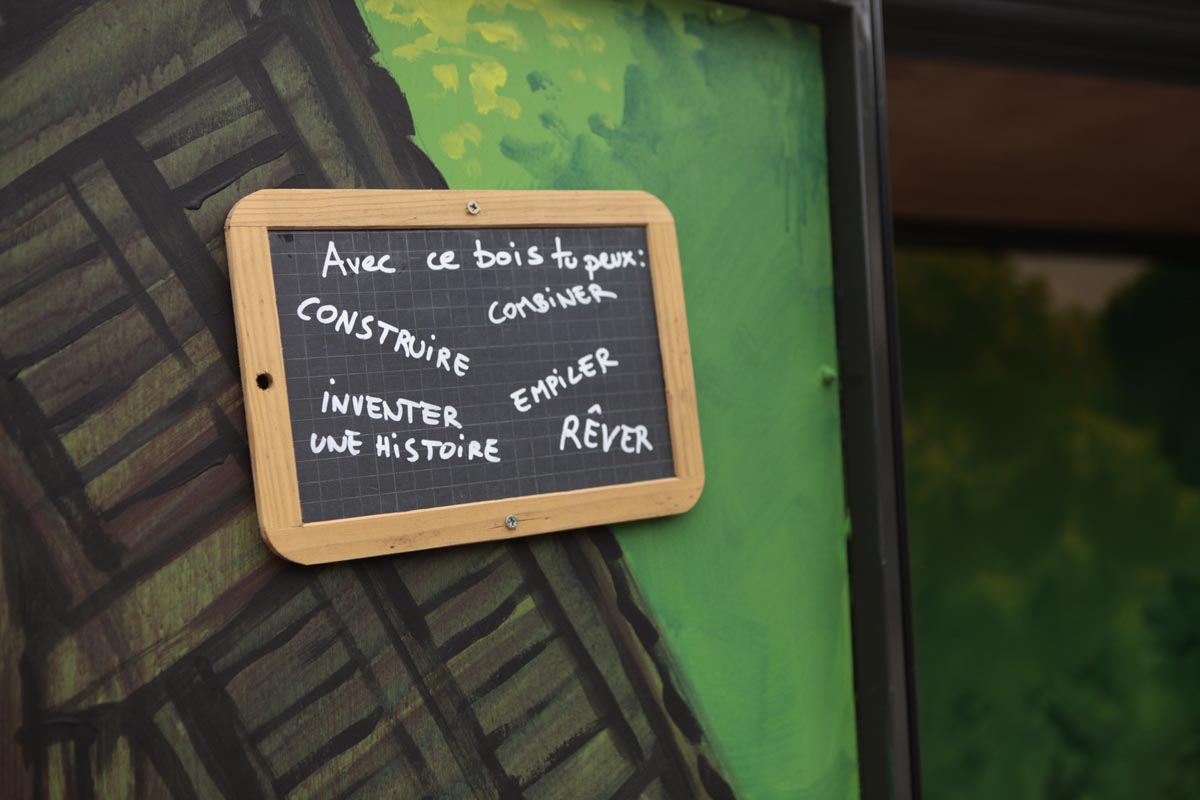 Avec ce bois tu peux:
CONSTRUIRE
COMBINER
EMPILER
INVENTER
UNE HISTOIRE
RÊVER